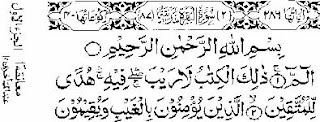 اٰيَاتُهَا ٢٨٦ (٢) سُوْرَةُ الْبَقَرَةِ مَدَنِيَّةٌ (٨٧) رُكُوْعَاتُهَا ٤٠
بِسْمِ اللهِ الرَّحْمٰنِ الرَّحِيْمِ
الٓمّٓ ۝١ ذٰلِكَ الْكِتٰبُ لَا رَيْبَ ۛ فِيْهِ ۛ هُدًى
لِّلْمُتَّقِيْنَ ۝٢ الَّذِيْنَ يُؤْمِنُوْنَ بِالْغَيْبِ وَيُقِيْمُوْنَ
معانقة ١